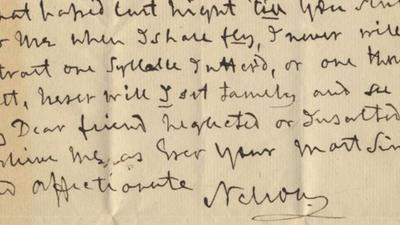 hat haped last night till you send
Me, when I shall fly, I never will
tract one Syllable I utter'd, or one thou
tt, Never will I set tamely and see
Dear friend neglected or Insulted
me, as Ever your Most Sin
affectionate Nelson